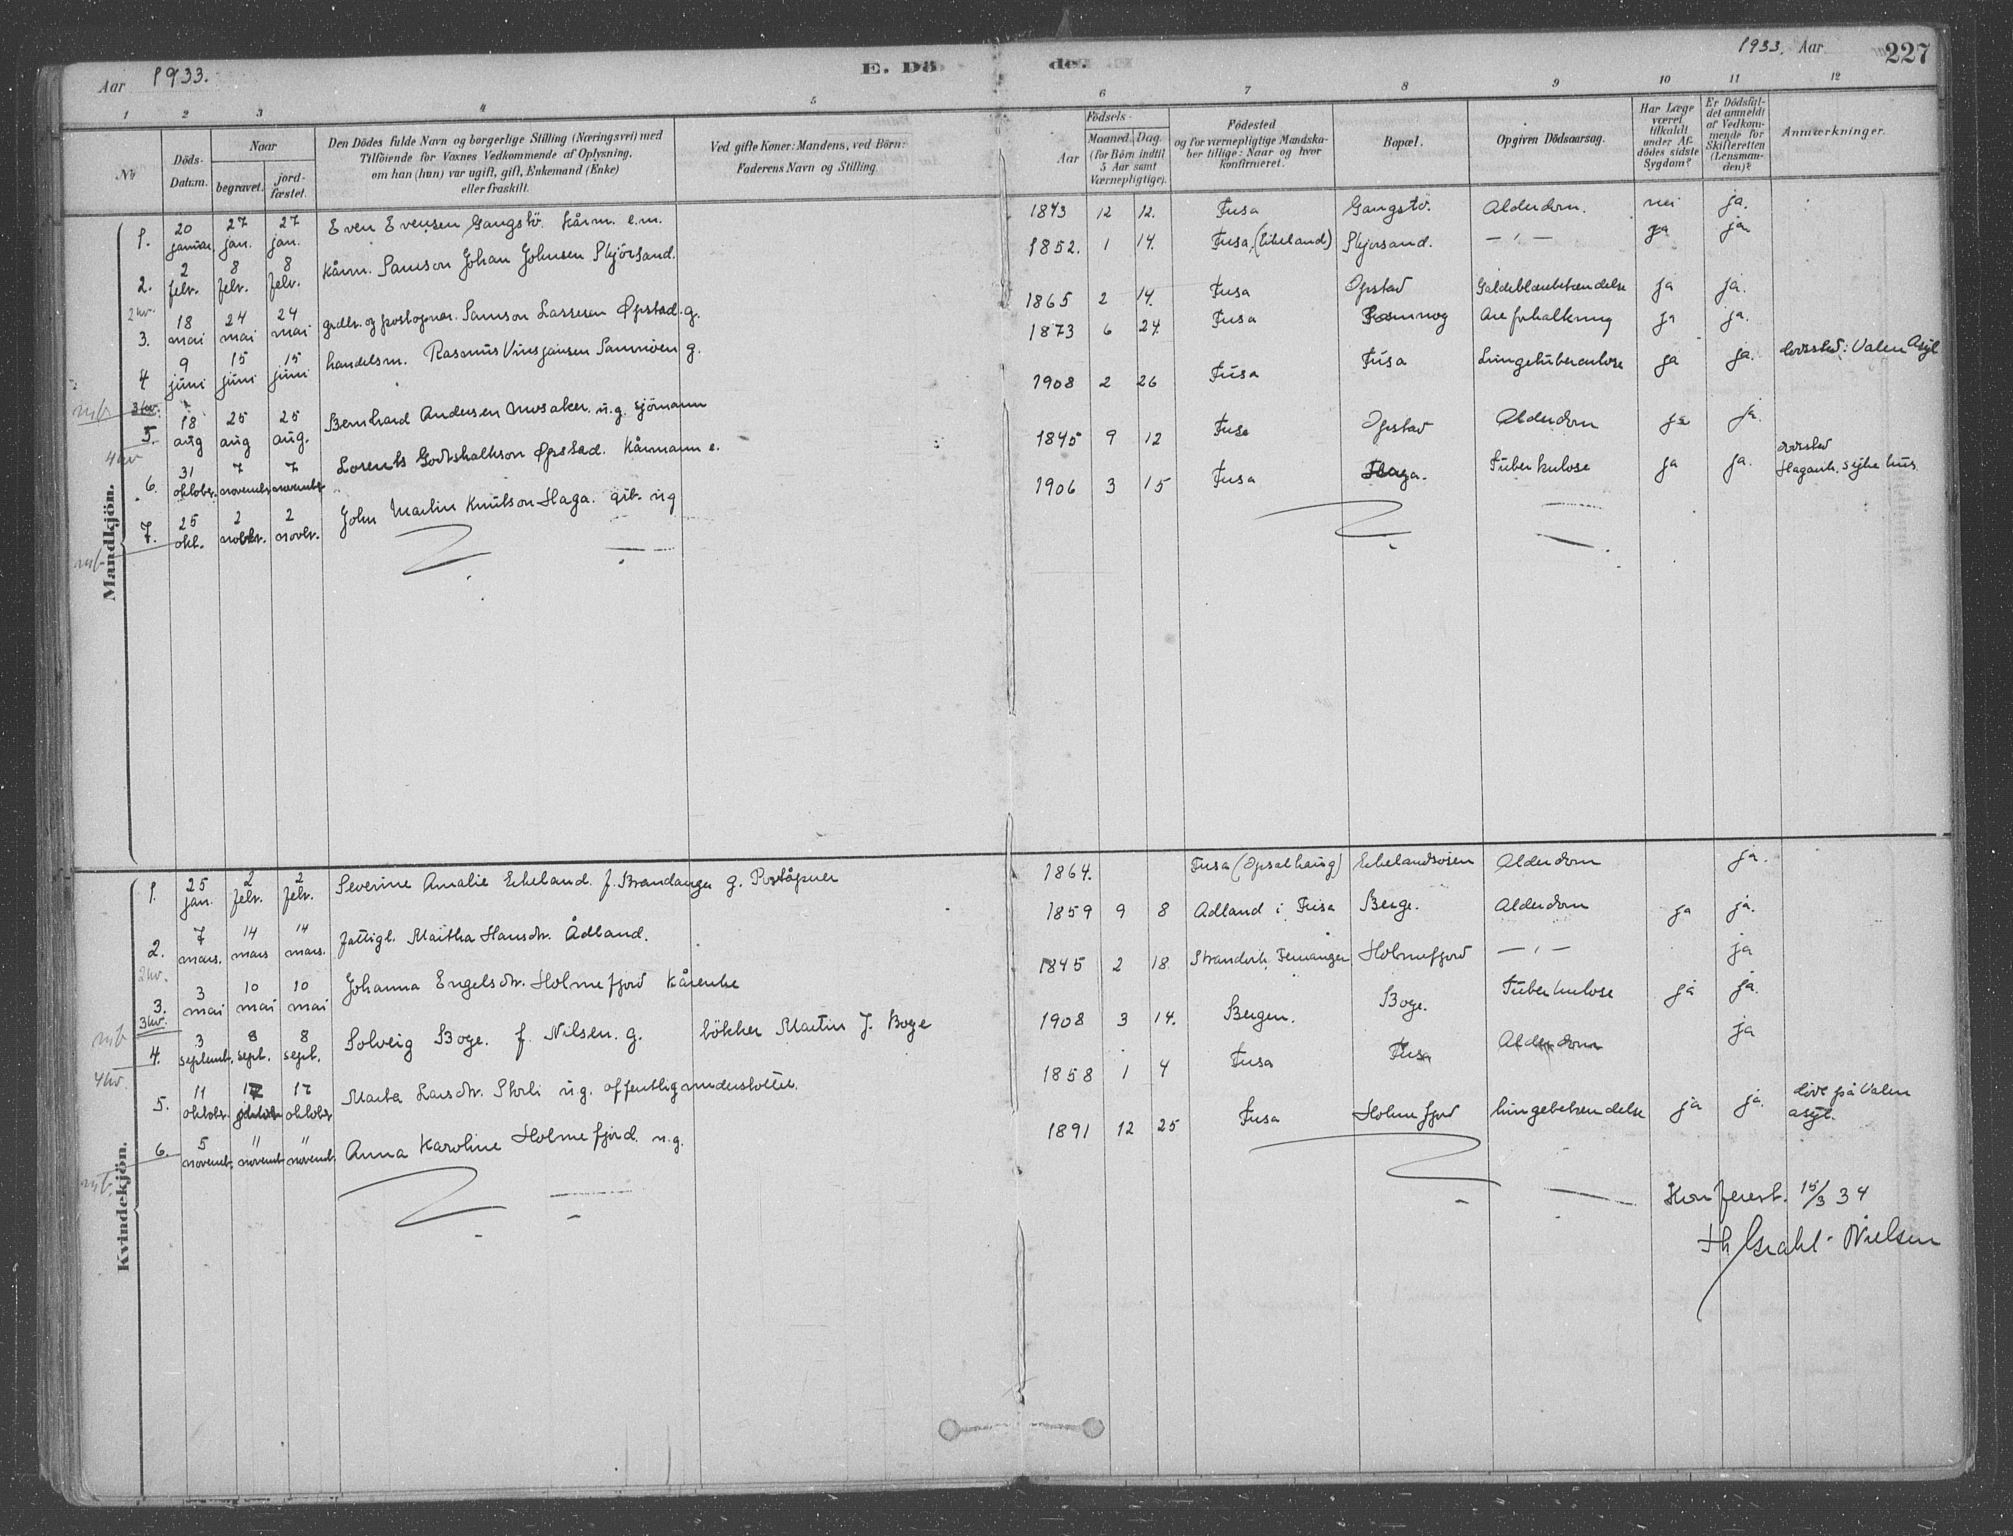 Aar 1933.
E. Dö
de.
1933. Aar
227
1 2 3 4 5 6 7 8 9 10 11 12
No
Döds-Datum.
Naar
begravet.
jord-fæstet.
Den Dödes fulde Navn og borgerlige Stilling (Næringsvei) med
Tilföiende for Voxnes Vedkommende af Oplysning,
om han (hun) var ugift, gift, Enkemand (Enke)
eller fraskilt.
Ved gifte Koner: Mandens, ved Börn:
Faderens Navn og Stilling.
Födsels-
Aar
Maaned. Dag.
(for Börn indtil
5 Aar samt
Værnepligtige).
Födested
og for værnepligtige Mandska-
ber tillige: Naar og hvor
konfirmeret.
Bopæl.
Opgiven Dödsaarsag.
Har Læge
været
tilkaldt
under Af-
dödes sidste
Sygdom?
Er Dödsfal-
det anmeldt
af Vedkom-
mende for
Skifteretten
(Lensman-
den)?
Anmærkninger.
Mandkjön.
1. 20 januar 27 jan. 27 jan. Even Evensen Gangstö. Kårm. e.m. 1843 12 12. Fusa Gangstö. Alderdom. nei ja.
2. 2 febr. 8 febr. 8 febr. Kårm. Samson Johan Johnsen Skjörsand. 1852. 1 14. Fusa, (Eikeland) Skjørsand. — " — ja ja
2 kv.
3. 18 mai 24 mai 24 mai grdbr. og postopnar. Samson Lassesen Øpstad. g. 1865 2 14. Fusa Opstad Galdeblærebetændelse ja ja.
4 9 juni 15 juni 15 juni handelsm. Rasmus Vinsjansen Samnøen g. 1873 6 24. Fusa Samnøg Åreforkalkning ja ja.
mb 3 kv.
5. 18 aug 25 aug 25 aug. Bernhard Andersen Mosaker. u.g. sjömann 1908 2 26 Fusa Fusa Lungetuberculose ja ja. dødssted: Valen Asyl
4 kv
6. 31 oktobr. 7 novembr 7 novembr Lorents Godtskalkson Øpstad. Kårmann e. 1845 9 12 Fusa Opstad Alderdom ja ja.
7. 25 okt. 2 novbr. 2 novbr. John Martin Knutson Haga. arb. ug 1906 3 15 Fusa Haga. Tuberkulose ja ja. dødssted Hagank. sykehus.
mb
Kvindekjön.
1. 25 jan. 2 febr. 2 febr. Severine Amalie Eikeland. f. Strandanger g. Poståpner 1864. Fusa (Opsalhaug) Eikelandsosen Alderdom ja.
2. 7 mars. 14 mars 14 mars. fattigl. Maitha Hansdtr. Ådland. 1859 9 8 Adland i Fusa Berge. Alderdom ja ja.
2 kv.
3. 3 mai 10 mai 10 mai Johanna Engelsdtr. Holmefjord Kårenke 1845 2 18. Strandvik, Femanger Holmefjord — " — ja
3 kv. mb
4. 3 septemb. 8 sept. 8 sept. Solveig Boge. f. Nilsen. g. bökker Martin J. Boge 1908 3 14. Bergen. Boge. Tuberkulose ja ja.
4 kv.
5. 11 oktobr. 17 oktobr 17 oktobr Marta Larsdtr. Storli u.g. offentlig understöttet. 1858 1 4 Fusa Fusa Alderdom ja
6. 5 novemb. " novemb " novemb. Anna Karoline Holmefjord. u.g. 1891 12 25 Fusa Holmefjord lungebetendelse ja ja. död på Valen asyl.
mb.
Konferert. 15/3 34
Th Grahl-Nielsen